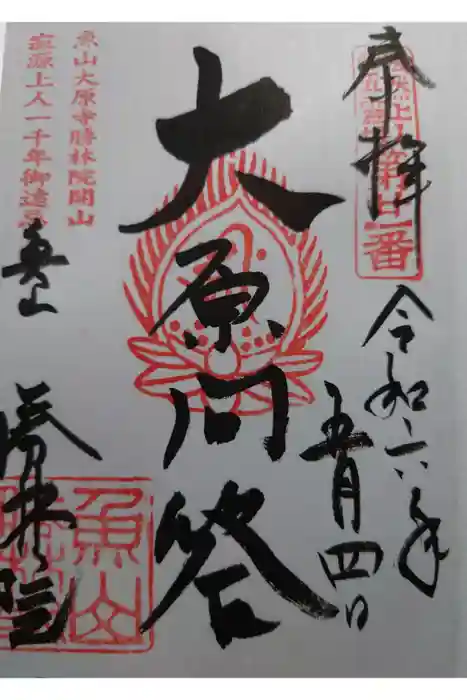 奉拝
令和六年
五月四日
大原問答
魚山大原寺勝林院開山
寂源上人一千年御遠忌
魚山
勝林院
魚山